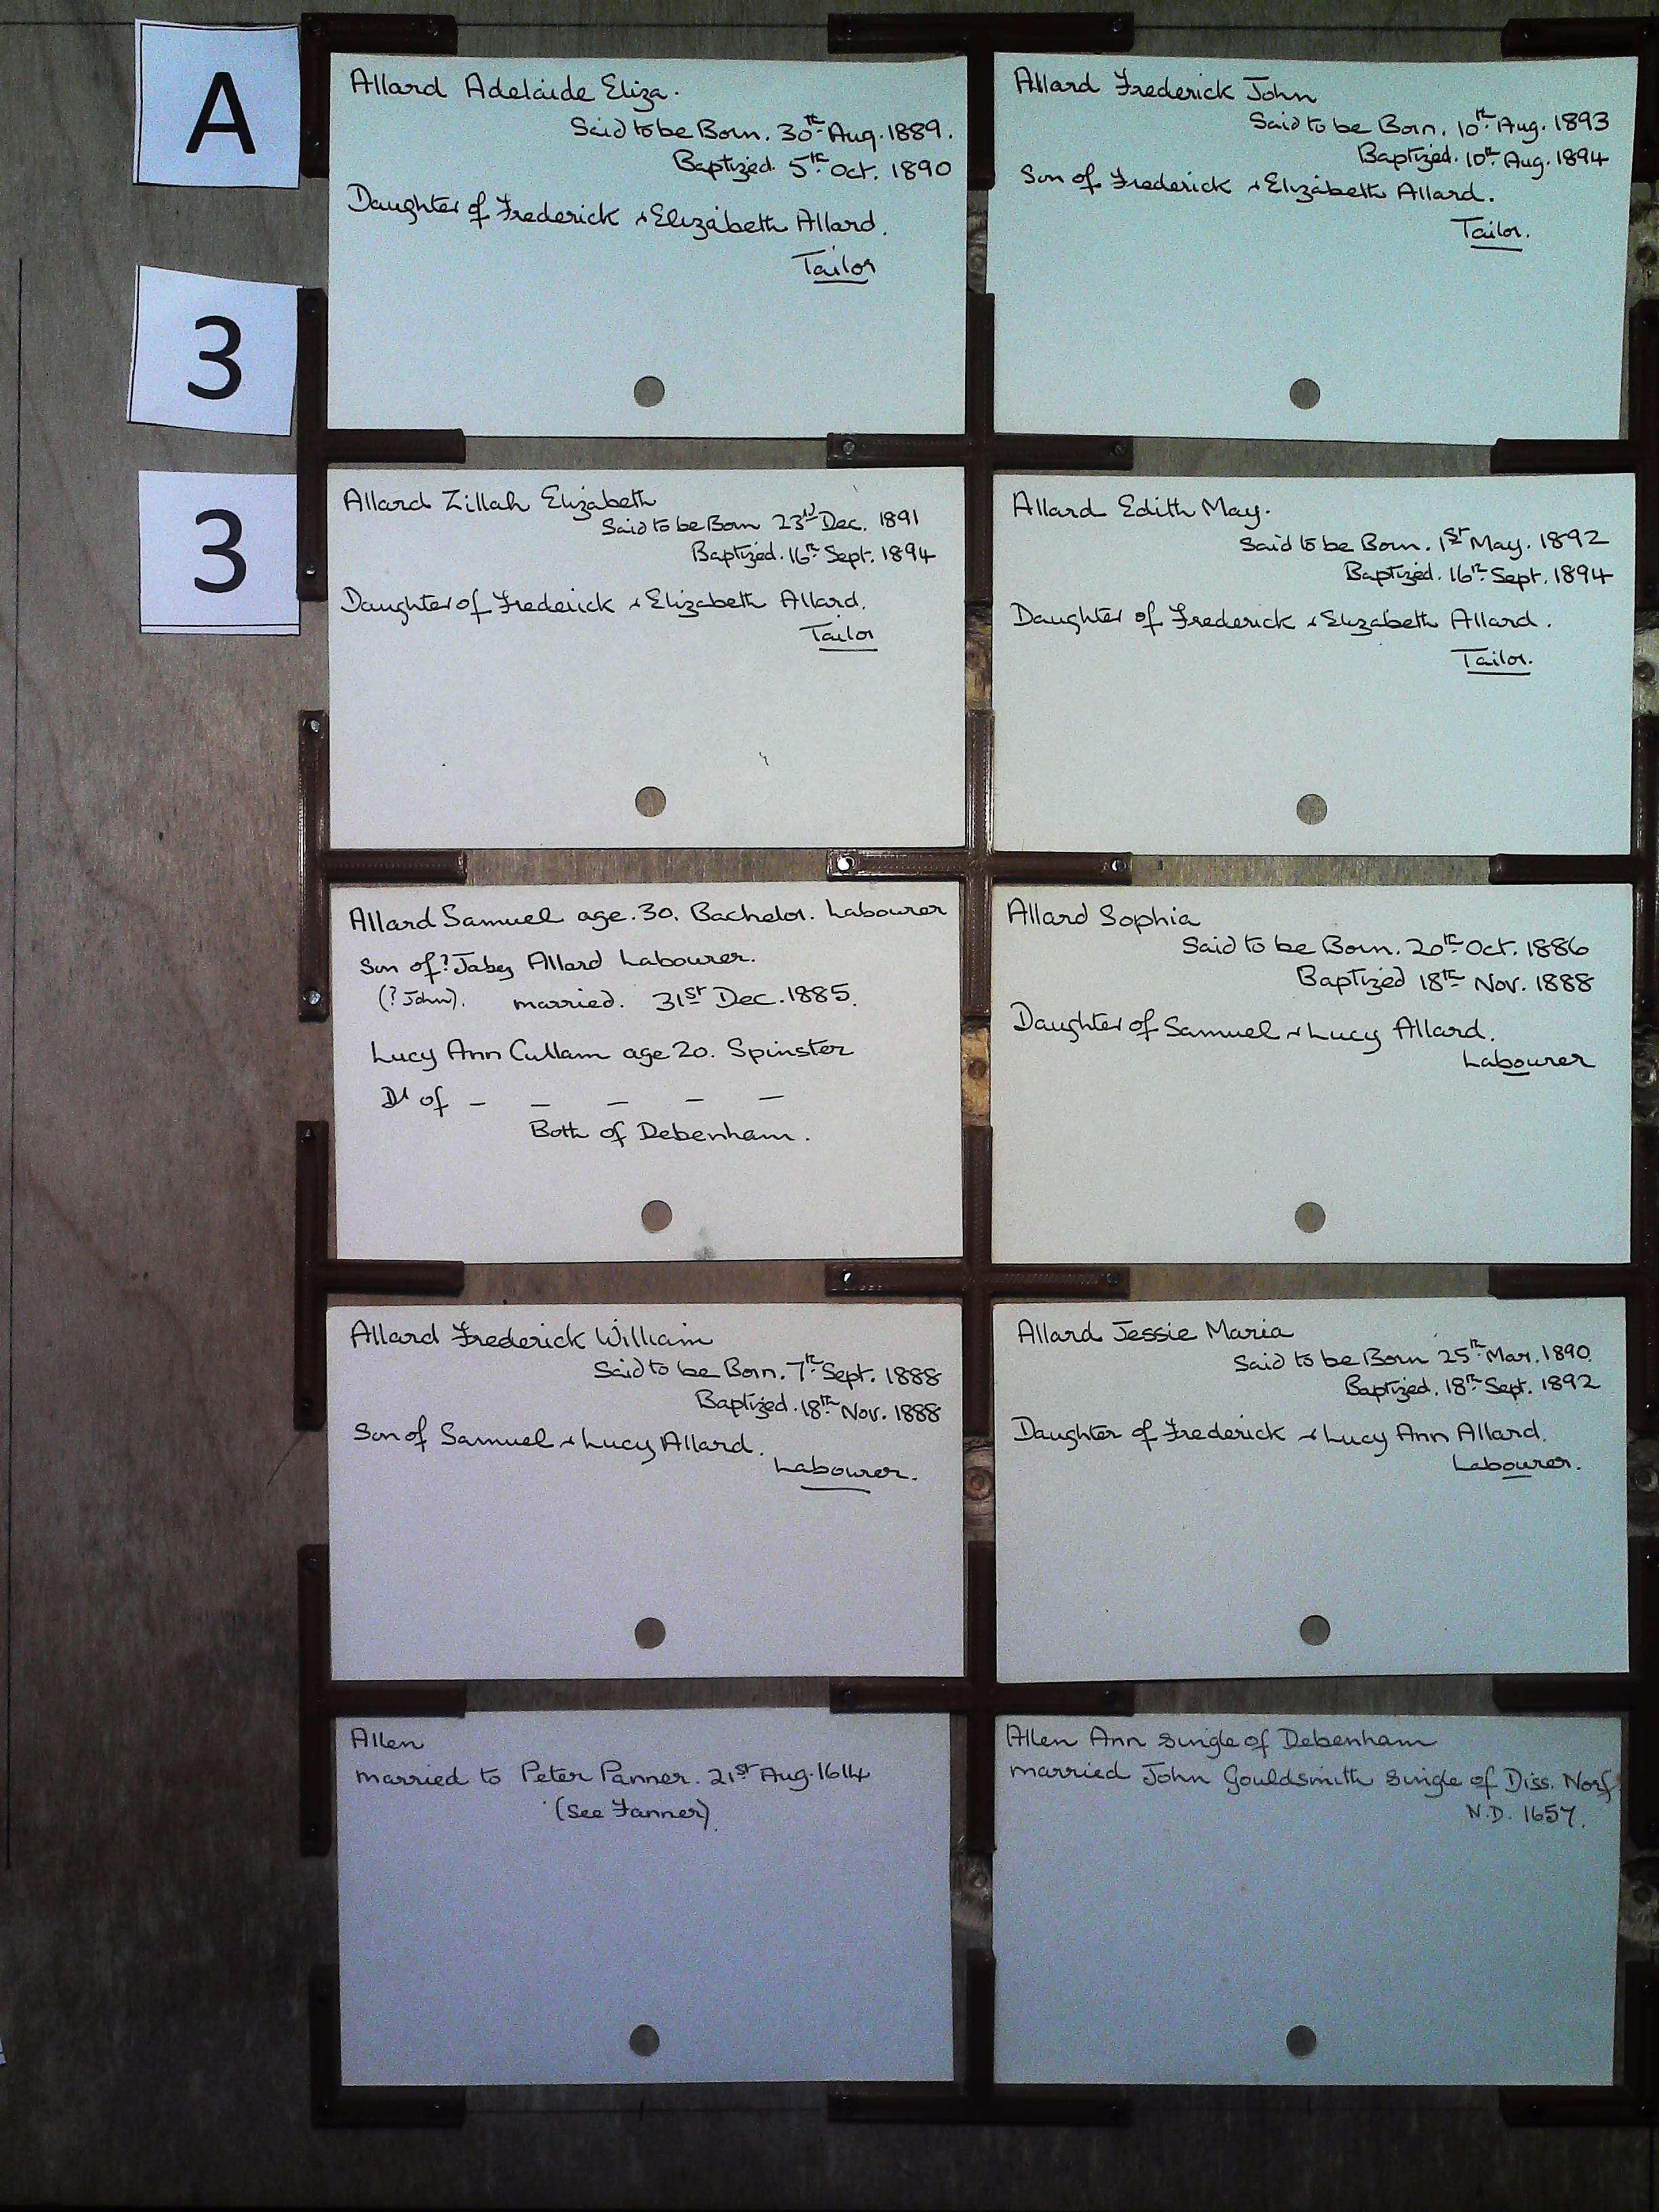 A
3
3
Allard Adelaide Eliza.
Said to be Born. 30th Aug. 1889.
Baptized. 5th Oct. 1890
Daughter of Frederick & Elizabeth Allard.
Tailor
Allard Frederick John
Said to be Born. 10th Aug. 1893
Baptized. 10th Aug. 1894
Son of Frederick & Elizabeth Allard.
Tailor.
Allard Zillah Elizabeth
Said to be Born 23rd Dec. 1891
Baptized. 16th Sept. 1894
Daughter of Frederick & Elizabeth Allard.
Tailor
Allard Edith May.
Said to be Born. 1st May. 1892
Baptized. 16th Sept. 1894
Daughter of Frederick & Elizabeth Allard.
Tailor.
Allard Samuel age. 30. Bachelor. Labourer
Son of ? Jabez Allard Labourer.
(? John). married. 31st Dec. 1885.
Lucy Ann Cullam age 20. Spinster
Dr of – – – – –
Both of Debenham.
Allard Sophia
Said to be Born. 20th Oct. 1886
Baptized 18th Nov. 1888
Daughter of Samuel & Lucy Allard.
Labourer
Allard Frederick William
Said to be Born. 7th Sept. 1888
Baptized. 18th Nov. 1888
Son of Samuel & Lucy Allard.
Labourer.
Allard Jessie Maria
Said to be Born 25th Mar. 1890.
Baptized. 18th Sept. 1892
Daughter of Frederick & Lucy Ann Allard.
Labourer.
Allen
married to Peter Panner. 21st Aug. 1614
(See Fanner)
Allen Ann single of Debenham
married John Gouldsmith single of Diss. Norf
N.D. 1657.